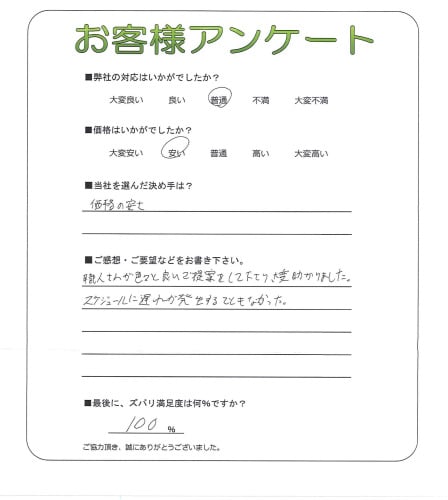 お客様アンケート
■弊社の対応はいかがでしたか？
大変良い 良い 普通 不満 大変不満
■価格はいかがでしたか？
大変安い 安い 普通 高い 大変高い
■当社を選んだ決め手は？
価格の安さ
■ご感想・ご要望などをお書き下さい。
職人さんが色々と良い提案をして下さり、大変助かりました。
スケジュールに遅れが発生することもなかった。
■最後に、ズバリ満足度は何％ですか？
100 %
ご協力頂き、誠にありがとうございました。